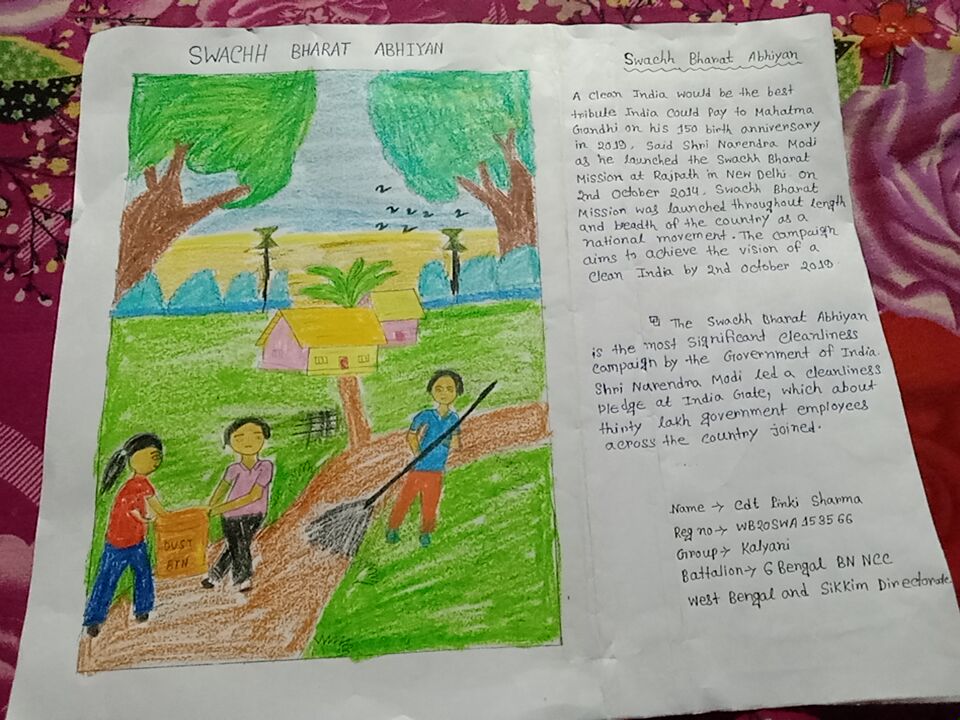 SWACHH BHARAT ABHIYAN
DUST
BIN
Swachh Bharat Abhiyan
A clean India would be the best
tribute India Could Pay to Mahatma
Gandhi on his 150 birth anniversary
in 2019, Said Shri Narendra Modi
as he launched the Swachh Bharat
Mission at Rajpath in New Delhi on
2nd October 2014. Swachh Bharat
Mission was launched throughout length
and beadth of the country as a
national movement. The campaign
aims to achieve the vision of a
Clean India by 2nd october 2019.
The Swachh Bharat Abhiyan
is the most Significant Cleanliness
campaign by the Government of India.
Shri Narendra Modi led a cleanliness
Pledge at India Gate, which about
thirty lakh government employees
across the country joined.
Name → Cdt Pinki Sharma
Reg no → WB20SWA153566
Group → Kalyani
Battalion → 6 Bengal BN NCC
West Bengal and Sikkim Directorate